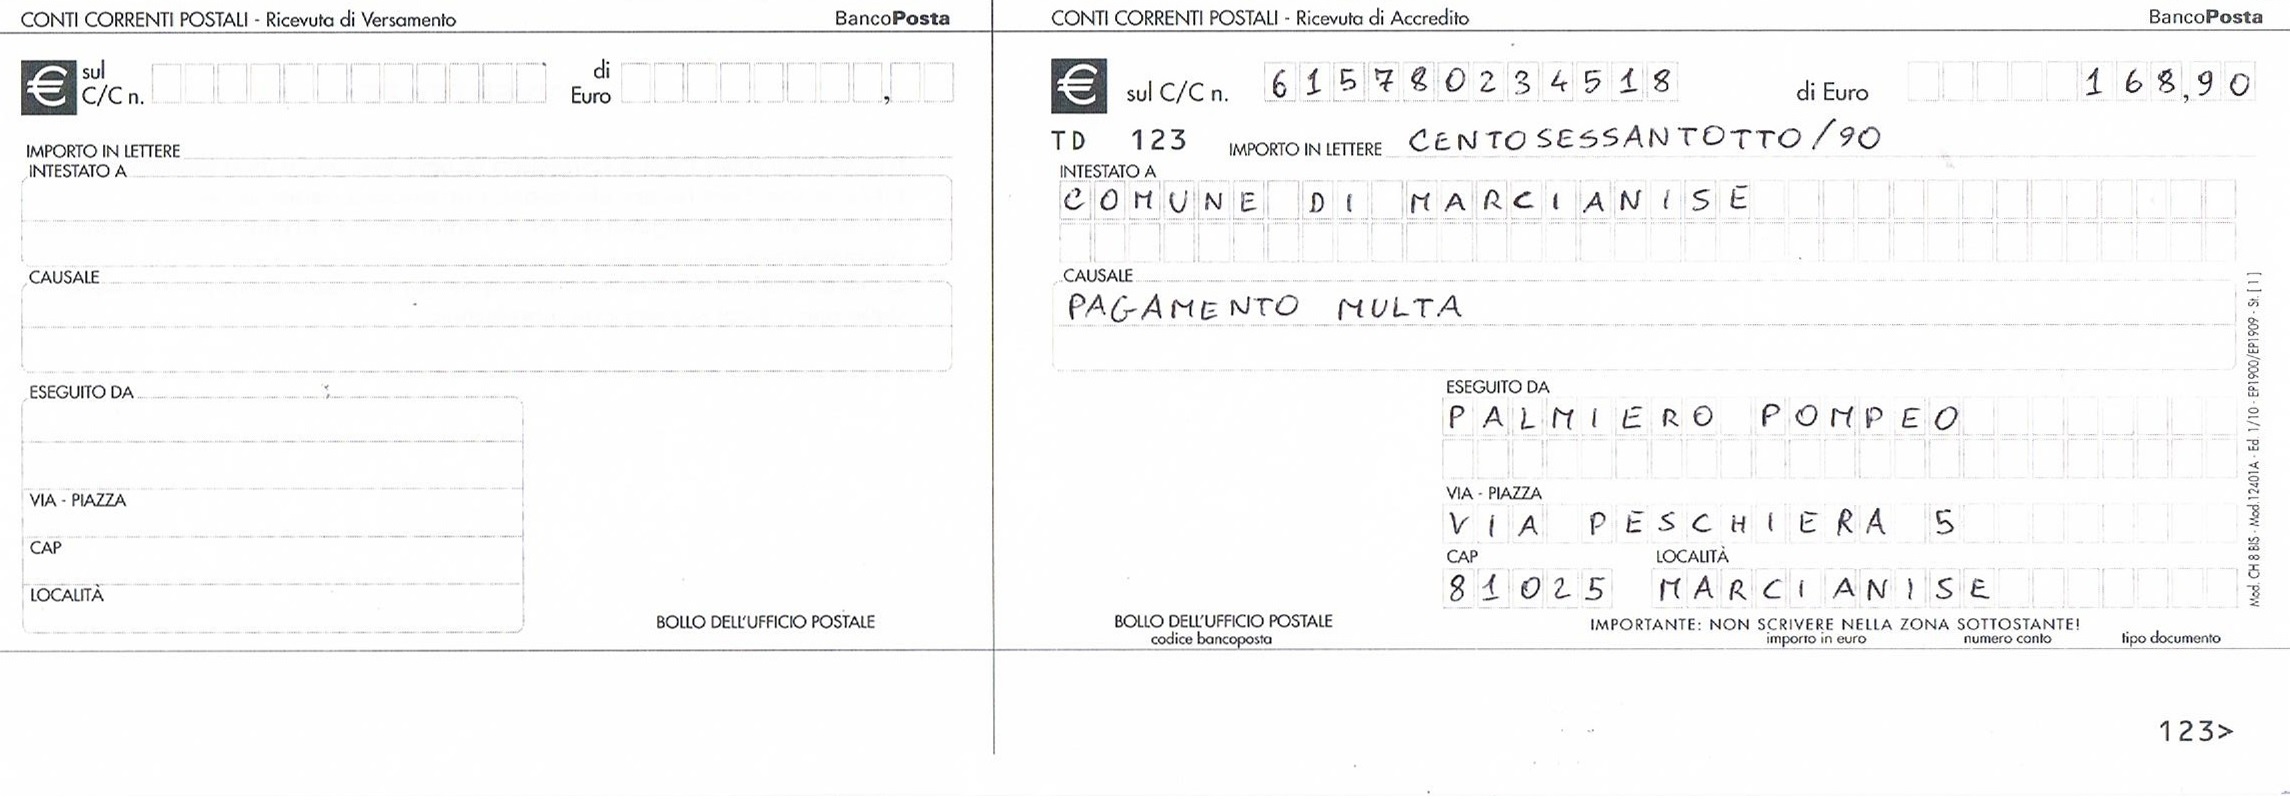 CONTI CORRENTI POSTALI - Ricevuta di Versamento BancoPosta
€ sul C/C n. di Euro ,
IMPORTO IN LETTERE
INTESTATO A
CAUSALE
ESEGUITO DA
VIA - PIAZZA
CAP
LOCALITÀ
BOLLO DELL'UFFICIO POSTALE
CONTI CORRENTI POSTALI - Ricevuta di Accredito BancoPosta
€ sul C/C n. 615780234518 di Euro 168,90
TD 123 IMPORTO IN LETTERE CENTOSESSANTOTTO/90
INTESTATO A
COMUNE DI MARCIANISE
CAUSALE
PAGAMENTO MULTA
ESEGUITO DA
PALMIERO POMPEO
VIA - PIAZZA
VIA PESCHIERA 5
CAP LOCALITÀ
81025 MARCIANISE
BOLLO DELL'UFFICIO POSTALE
codice bancoposta
IMPORTANTE: NON SCRIVERE NELLA ZONA SOTTOSTANTE!
importo in euro numero conto tipo documento
Mod. CH 8 BIS - Mod. 12401A - Ed. 1/10 - EP1900/EP1909 - St. [1]
123>